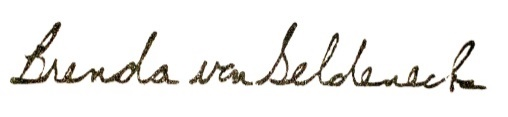 Brenda von Geldeneck